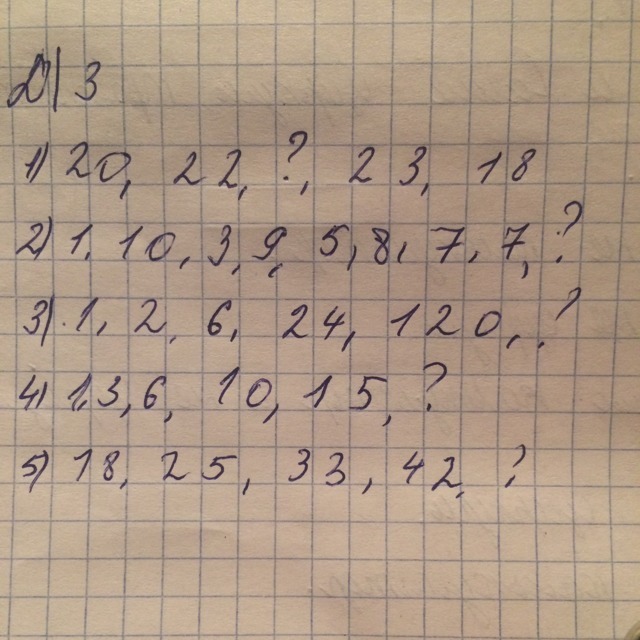 Д/З
1) 20, 22, ?, 23, 18
2) 1, 10, 3, 9, 5, 8, 7, 7, ?
3) 1, 2, 6, 24, 120, ?
4) 1, 3, 6, 10, 15, ?
5) 18, 25, 33, 42, ?